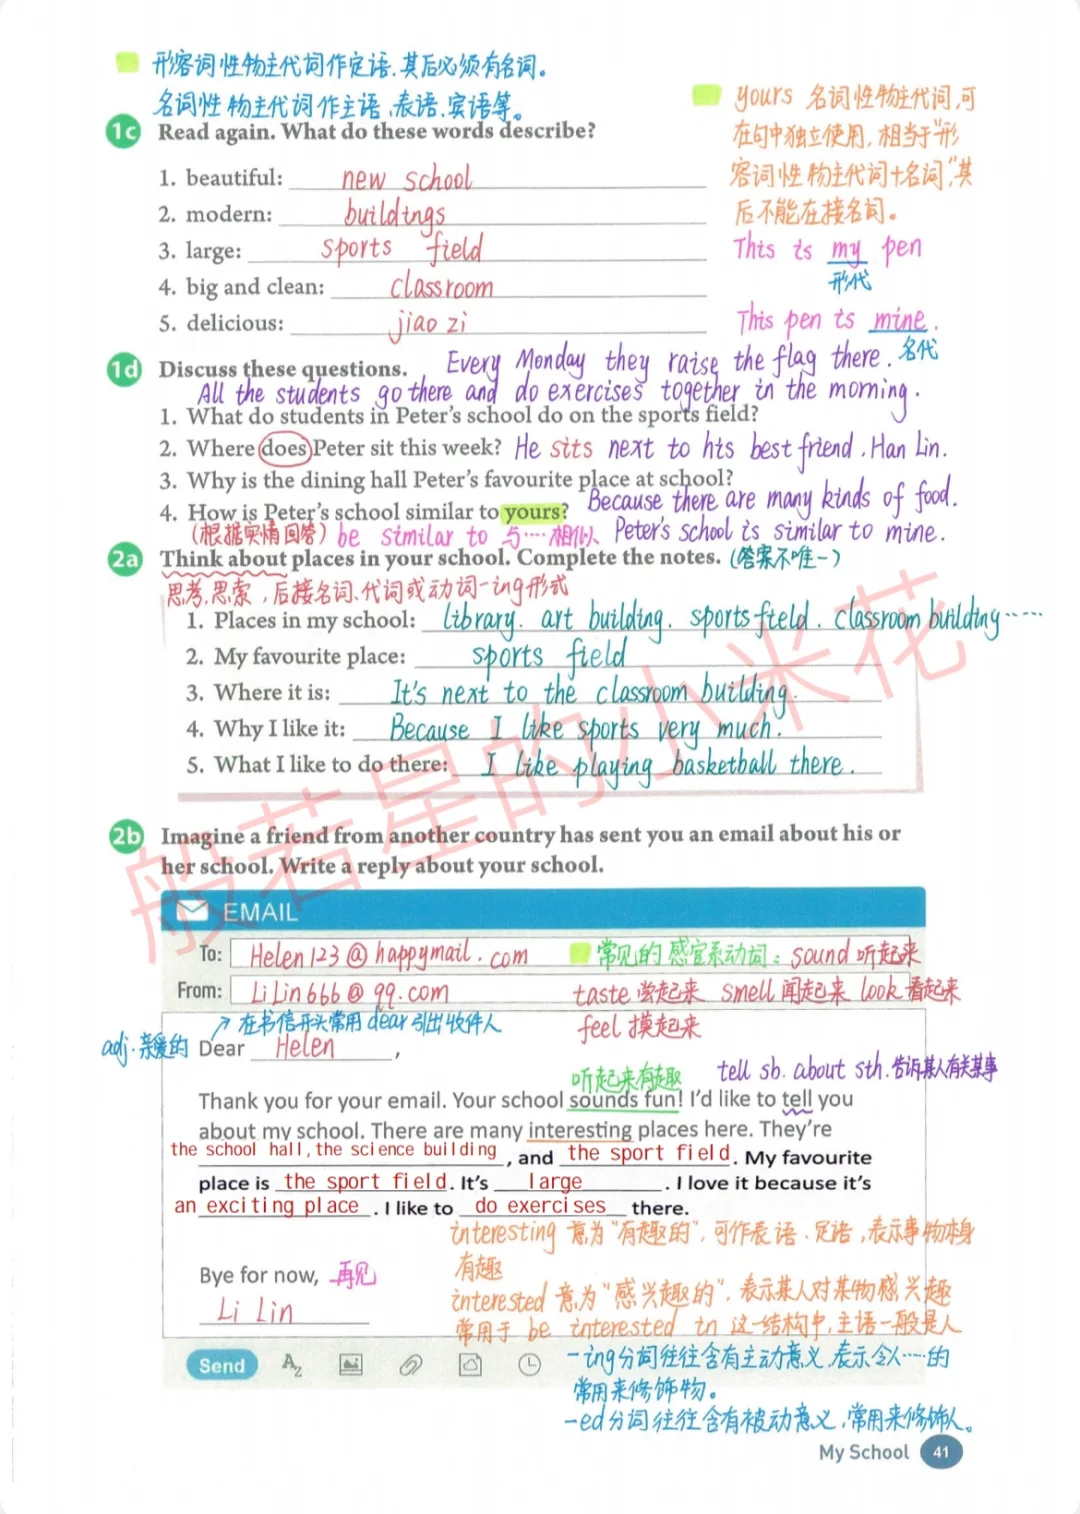 形容词性物主代词作定语,其后必须有名词。
名词性物主代词作主语、表语、宾语等。
yours 名词性物主代词,可
在句中独立使用,相当于"形
容词性物主代词+名词",其
后不能在接名词。
This is my pen
形代
This pen is mine.
名代
1c Read again. What do these words describe?
1. beautiful: new school
2. modern: buildings
3. large: sports field
4. big and clean: classroom
5. delicious: jiao zi
1d Discuss these questions. Every Monday they raise the flag there.
All the students go there and do exercises together in the morning.
1. What do students in Peter's school do on the sports field?
2. Where does Peter sit this week? He sits next to his best friend, Han Lin.
3. Why is the dining hall Peter's favourite place at school?
Because there are many kinds of food.
4. How is Peter's school similar to yours?
(根据实情回答) be similar to 与····相似、 Peter's school is similar to mine.
2a Think about places in your school. Complete the notes. (答案不唯一)
思考,思索,后接名词、代词或动词-ing形式
1. Places in my school: library. art building. sports field. classroom building······
2. My favourite place: sports field
3. Where it is: It's next to the classroom building.
4. Why I like it: Because I like sports very much.
5. What I like to do there: I like playing basketball there.
般若星的小米花
2b Imagine a friend from another country has sent you an email about his or
her school. Write a reply about your school.
EMAIL
To: Helen123@happymail.com
常见的感官系动词: sound 听起来
From: LiLin666@qq.com
taste 尝起来 smell 闻起来 look 看起来
feel 摸起来
在书信开头常用dear引出收件人
adj.亲爱的 Dear Helen,
听起来有趣 tell sb. about sth.告诉某人有关某事
Thank you for your email. Your school sounds fun! I'd like to tell you
about my school. There are many interesting places here. They're
the school hall,the science building, and the sport field. My favourite
place is the sport field. It's large. I love it because it's
an exciting place. I like to do exercises there.
interesting 意为"有趣的",可作表语、定语,表示事物本身
有趣
Bye for now, 再见
interested 意为"感兴趣的",表示某人对某物感兴趣
Li Lin
常用于 be interested in 这一结构中,主语一般是人
Send
-ing分词往往含有主动意义,表示令人······的
常用来修饰物。
-ed分词往往含有被动意义,常用来修饰人。
My School 41